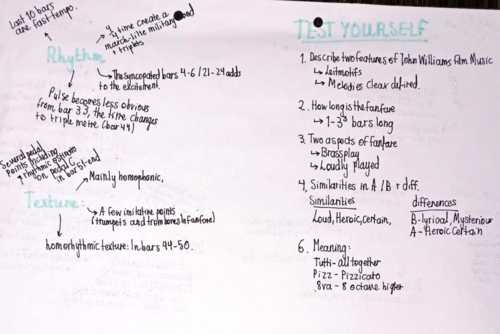 Last 10 bars
are fast-tempo.
4
4 time create a
march-like military mood
+ triplets
Rhythm
The syncopated bars 4-6/21-24 adds
to the excitement.
Pulse becomes less obvious
from bar 33, the time changes
to triple metre (bar 44)
Several pedal
points including
rhythmic ostinato
on pedal C
in bar 51-end
Mainly homophonic,
Texture:
A few imitative points
(trumpets and trombones in fanfare)
homorhythmic texture: In bars 44-50.
TEST YOURSELF
1. Describe two features of John Williams film Music
Leitmotifs
Melodies clear defined.
2. How long is the fanfare
1-3³ bars long
3. Two aspects of fanfare
Brassplay
Loudly played
4, Similarities in A/B + diff.
Similarities
Loud, Heroic, Certain,
differences
B-lyrical, Mysteriour
A-Heroic Certain
6. Meaning:
Tutti- all together
Pizz- Pizzicato
8va - 8 octave higher